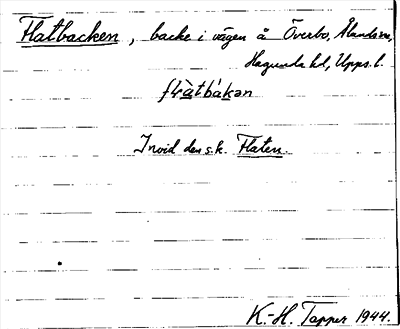 Flatbacken, backe i vägen å Överbo, Ålands sn,
Hagunda hd, Upps. l.
flàtbákən
Invid den s.k. Flaten.
K.-H. Tapper 1944.